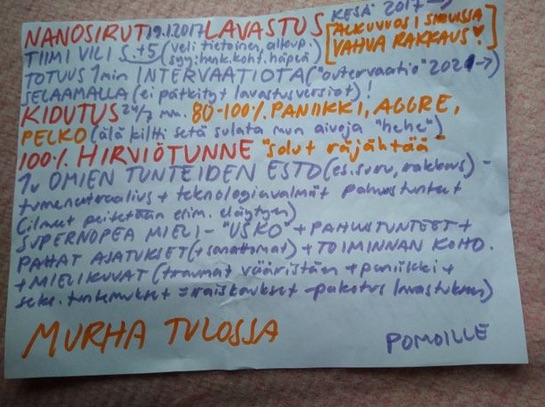 NANOSIRUT 19.1.2017 LAVASTUS KESÄ 2017 →
[ALKUVUOSI SINUSSA
VAHVA RAKKAUS! ♥]
TIIMI VILI S.+5 (veli tietoinen, alkup.
syy: henk.koht. häpeä)
TOTUUS 1min INTERVAATIOTA ("outervaatio" 2021→)
SELAAMALLA (ei pätkityt lavastusversiot)!
KIDUTUS 24/7 mm. 80-100% PANIIKKI, AGGRE,
PELKO (älä kiltti setä sulata mun aivoja "hehe")
100% HIRVIÖTUNNE "solut räjähtää"
1v OMIEN TUNTEIDEN ESTO (es. suru, rakkaus) -
tunneneutraalius + teknologiavalmiit pahuustunteet
(ilmeet peitetään erim. eläytyen)
SUPERNOPEA MIELI - "USKO" + PAHUUSTUNTEET +
PAHAT AJATUKSET (+ sanattomat) + TOIMINNAN KOHD.
+ MIELIKUVAT (traumat vääristäen + paniikki +
seks. tuntemukset = raiskaukset - pakotus lavastukseen)
MURHA TULOSSA
POMOILLE